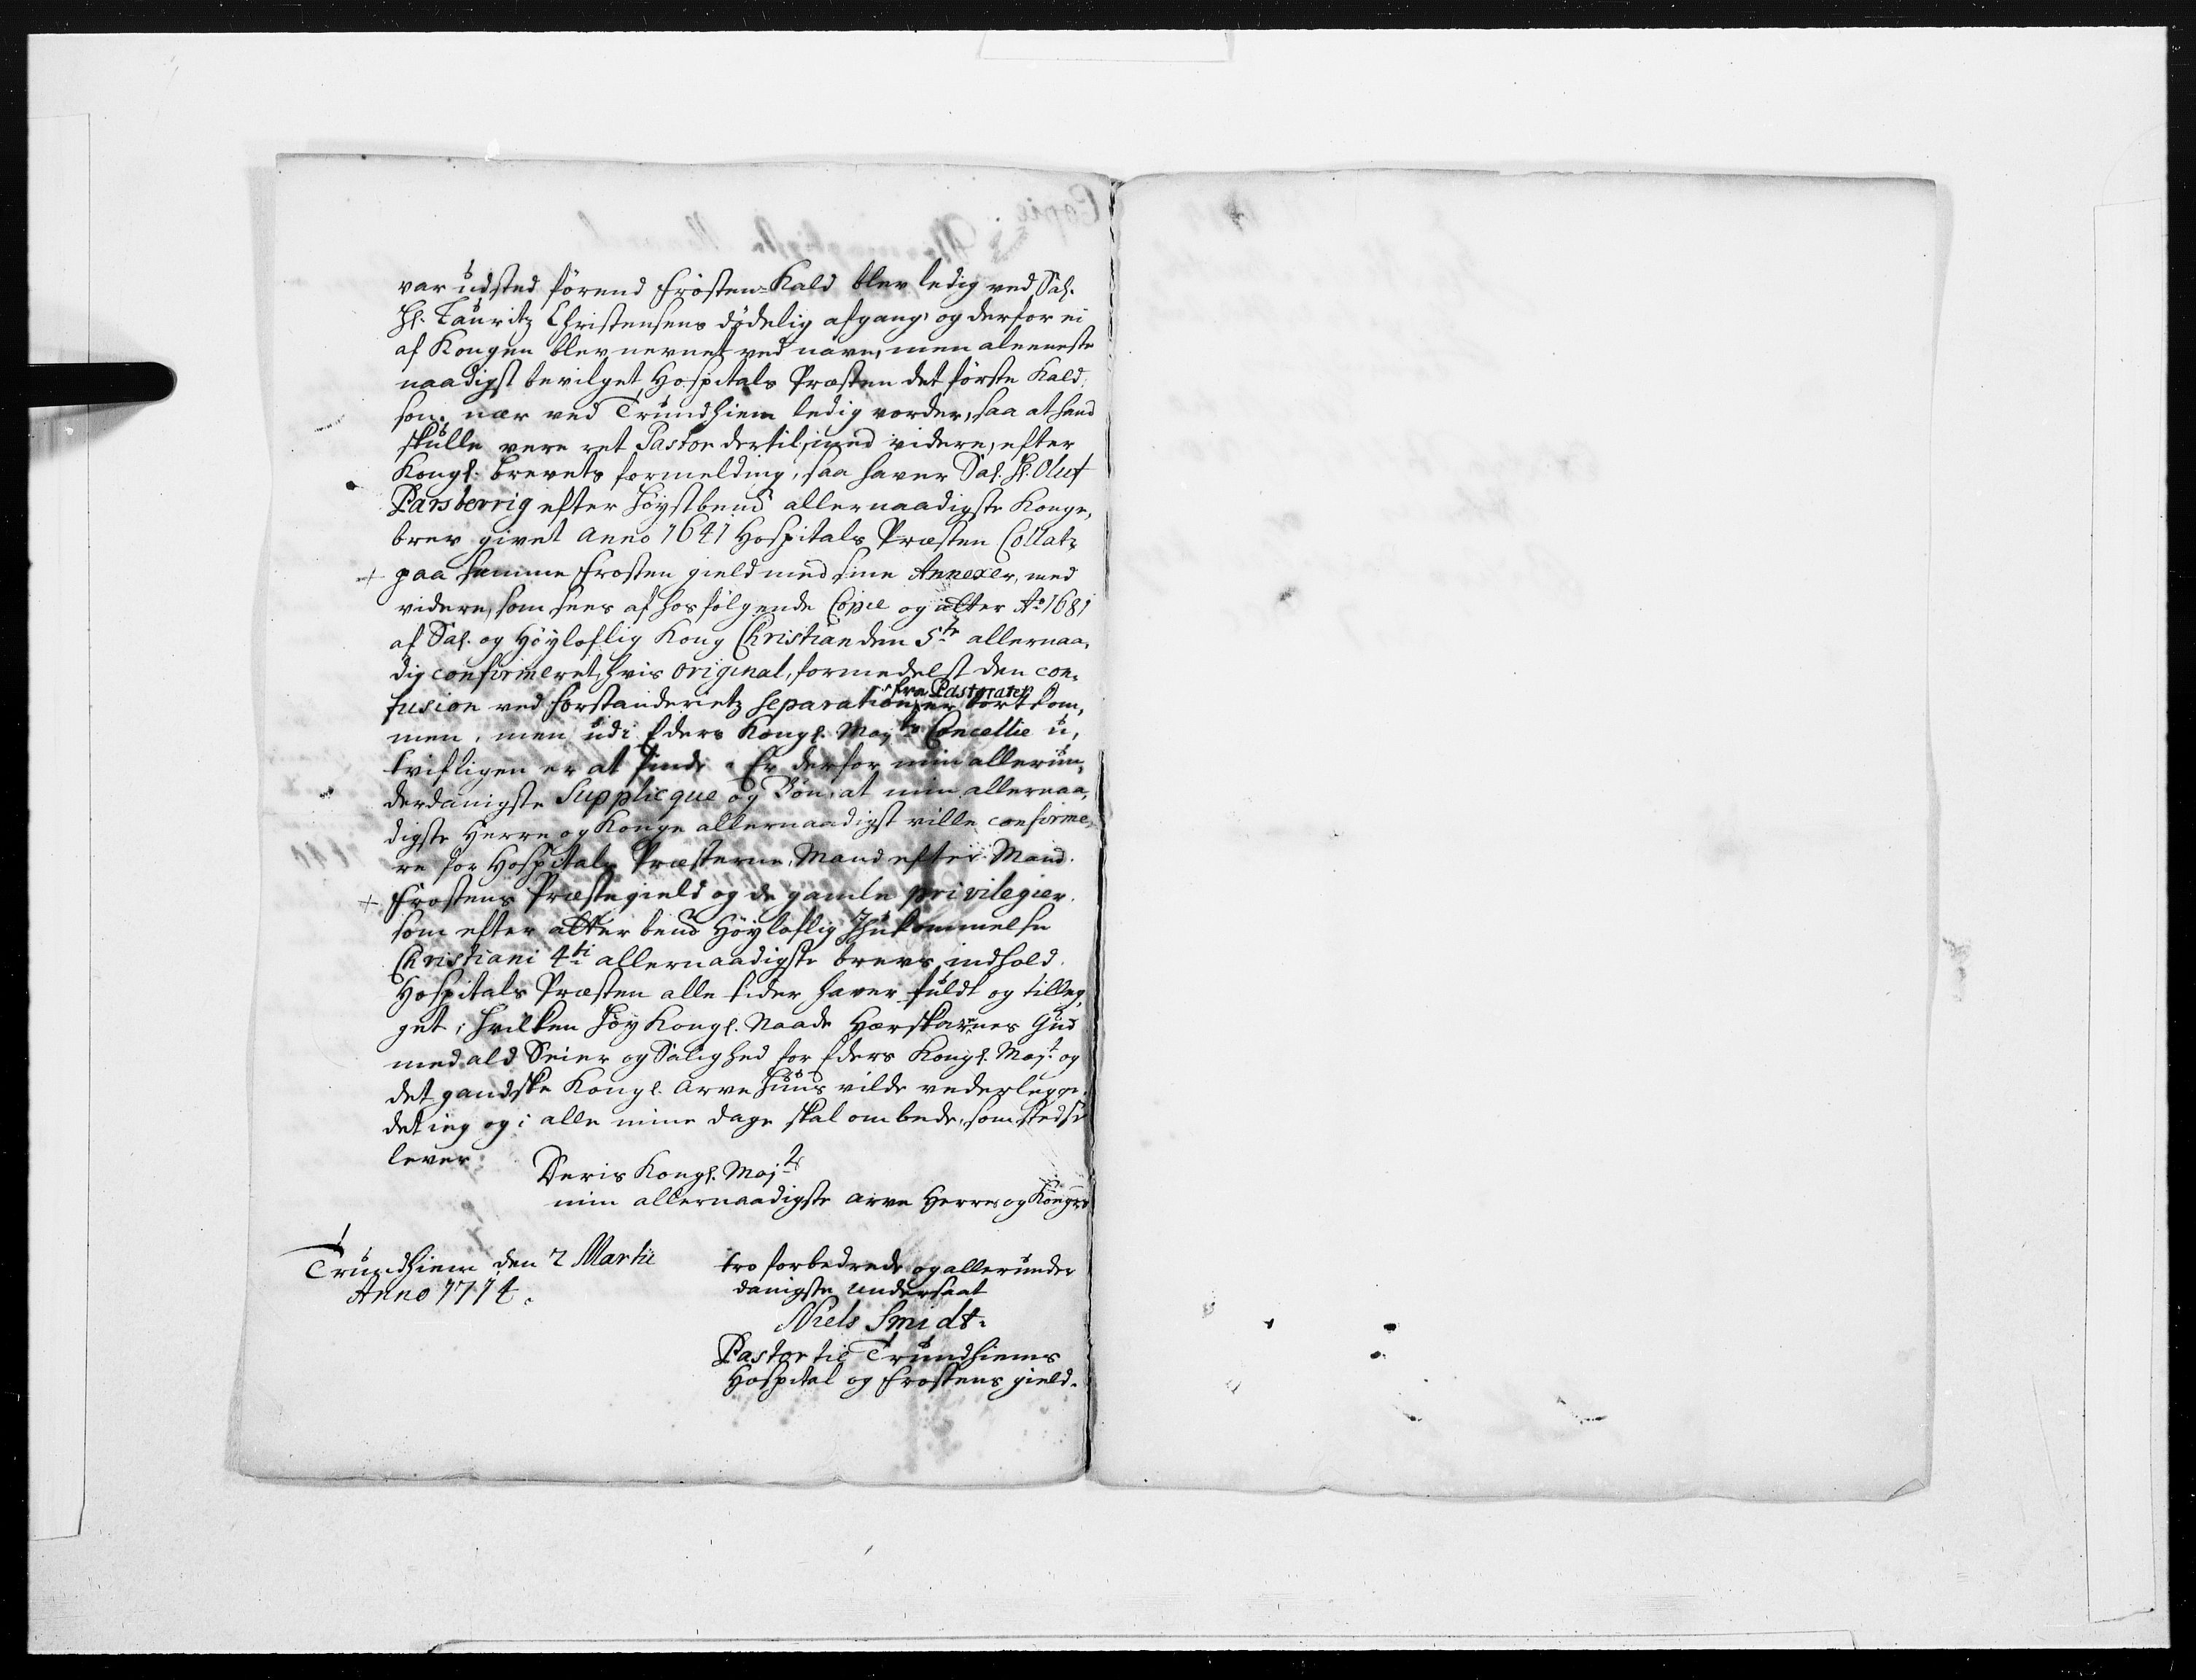 var udsted förend Frosten-Kald blev ledig ved Sal.
Hr. Lauritz Christensens dödelig afgang, og derfor ei
af Kongen blev nevnet ved navn, men aleeneste
naadigst bevilget Hospitals Præsten det förste Kald
som nær ved Trundhiem ledig vorder, saa at hand
skulle være ret Pastor dertil, med videre, efter
Kongl. brevets formelding, saa haver Sal. Hr. Oluf
Parsberrig efter höystbend allernaadigste Konge,
brev givet Anno 1641 Hospitals Præsten Collatz
+ paa samme Frosten gield med sine Annexer, med
videre, som sees af hosfölgende Copie og atter Ao 1681
af Sal. og Höyloflig Kong Christian den 5te allernaa,
dig confirmeret, hvis original, formedelst den con,
fusion ved forstanderetz separation fra Pastoratet er bortkom,
men, men udi Eders Kongl. Majts Cancellie u,
tvifligen er at finde. Er derfor min allerun,
derdanigste Supplicque og Bön, at min allernaa,
digste Herre og Konge allernaadigst ville confirme,
re for Hospitals Præsterne, Mand efter Mand.
+ Frostens Præstegield og de gamle privilegier.
som efter atter bend Höyloflig Ihukommelse
Christiani 4ti allernaadigste brevs indhold.
Hospitals Præsten alle tider haver fuldt og tilleg,
get; hvilken Höy Kongl. Naade Hærskarenes Gud
med ald Seier og Salighed for Eders Kongl. Majt og
det gandske Kongl. Arve Huus vilde vederlegge.
det ieg og i alle mine dage skal ombede, som stedse
lever
Deris Kongl. Majts
min allernaadigste Arve Herres og Konges
Trundhiem den 2 Martii
Anno 1714.
tro forbedrende og allerunder
danigste undersaat
Niels Smidt.
Pastor til Trundhiems
Hospital og Frostens gield.